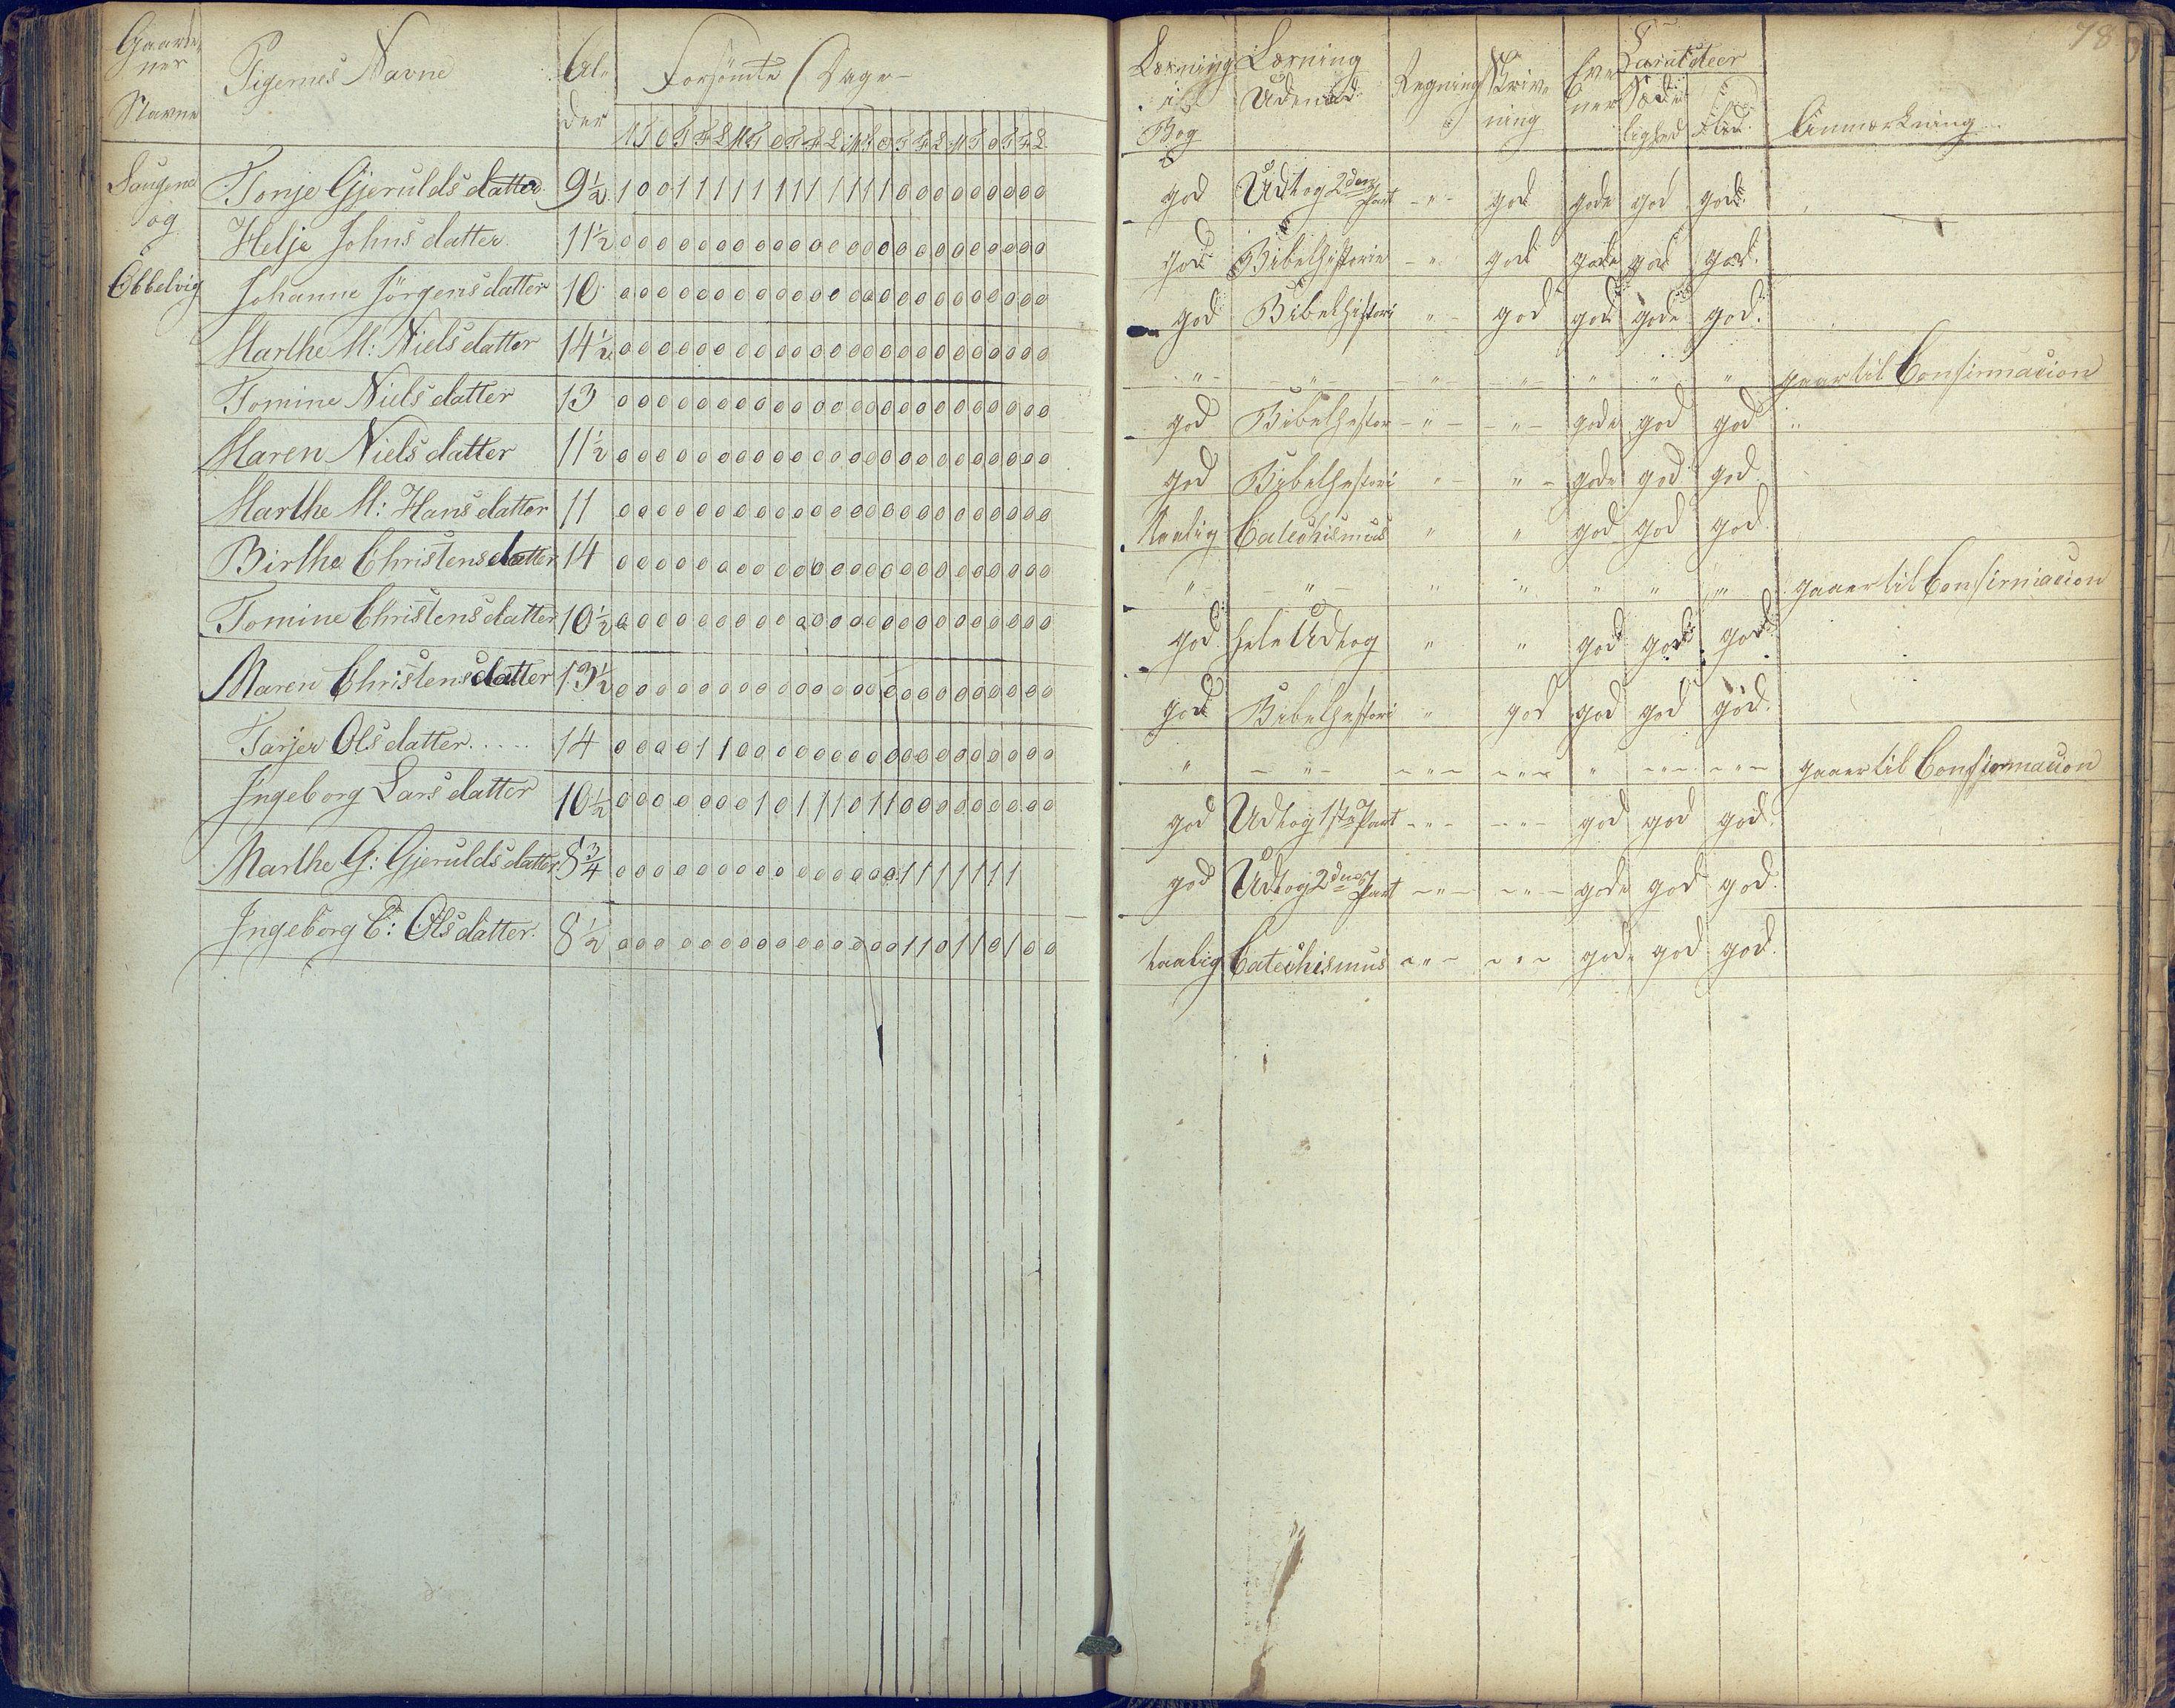 78
Gaarde- Pigernes Navne Al- Forsömte Dage
nes der
Navne
Læsning Læsning Regning Skriv- Evn Caracteer
i Udenad ning ner Sæde- Flid.
Bog lighed Anmærkning
M T O T F L M T O T F L M T O T F L M T O T F L
Saugene Tonje Gjerulds datter 9½ 1 0 0 1 1 1 1 1 1 1 1 1 1 1 1 1 0 0 0 0 0 0 0 0 god Udtog 2den Part " god gode god god.
og Helje Johns datter 11½ 0 0 0 0 0 0 0 0 0 0 0 0 0 0 0 0 0 0 0 0 0 0 0 0 god Bibelhistorie " god gode god god.
Ebbelvig Johanne Jörgens datter 10 0 0 0 0 0 0 0 0 0 0 0 0 0 0 0 0 0 0 0 0 0 0 0 0 god Bibelhistori " god gode gode god.
Marthe M: Niels datter 14½ 0 0 0 0 0 0 0 0 0 0 0 0 0 0 0 0 0 0 0 0 0 0 0 0 " " " " " " " gaar til Confirmacion
Tomine Niels datter 13 0 0 0 0 0 0 0 0 0 0 0 0 0 0 0 0 0 0 0 0 0 0 0 0 god Bibelhestor " " gode god god "
Maren Niels datter 11½ 0 0 0 0 0 0 0 0 0 0 0 0 0 0 0 0 0 0 0 0 0 0 0 0 god Bibelhestori " " gode god god
Marthe M: Hans datter 11 0 0 0 0 0 0 0 0 0 0 0 0 0 0 0 0 0 0 0 0 0 0 0 0 taalig Catechismus " " god god god
Birthe Christens datter 14 0 0 0 0 0 0 0 0 0 0 0 0 0 0 0 0 0 0 0 0 0 0 0 0 " " " " " " " gaaer til Confirmacion
Tomine Christens datter 10½ 0 0 0 0 0 0 0 0 0 0 0 0 0 0 0 0 0 0 0 0 0 0 0 0 god hele Udtog " " god god god
Maren Christens datter 13½ 0 0 0 0 0 0 0 0 0 0 0 0 0 0 0 0 0 0 0 0 0 0 0 0 god Bibelhestori " god god god god.
Tarjer Ols datter..... 14 0 0 0 0 1 1 0 0 0 0 0 0 0 0 0 0 0 0 0 0 0 0 0 0 " " " " " " " gaaer til Confirmacion
Ingeborg Lars datter 10½ 0 0 0 0 0 0 0 0 1 0 1 1 1 0 1 1 0 0 0 0 0 0 0 0 0 god Udtog 1ste Part " " god god god.
Marthe G: Gjerulds datter 8¾ 0 0 0 0 0 0 0 0 0 0 0 0 0 0 0 0 1 1 1 1 1 1 1 god Udtog 2den Part " " gode god god.
Ingeborg C: Ols datter. 8½ 0 0 0 0 0 0 0 0 0 0 0 0 0 0 0 0 1 1 0 1 1 0 1 0 0 taalig Catechismus " " gode god god.